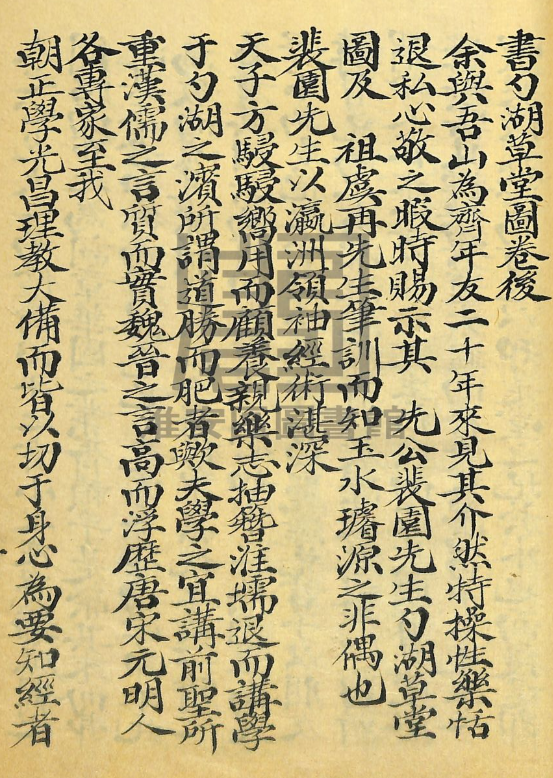 書勺湖草堂圖卷後
余與吾山為齊年友二十年來見其介然特操性樂恬
退私心敬之暇時賜示其 先公裴園先生勺湖草堂
圖及 祖虞再先生筆訓而知玉水璿源之非偶也
裴園先生以瀛洲領袖經術湛深
天子方駸駸嚮用而顧養親樂志抽簪淮壖退而講學
于勺湖之濱所謂道勝而肥者歟夫學之宜講前聖所
重漢儒之言質而實魏晉之言高而浮歷唐宋元明人
各專家至我
朝正學光昌理教大備而皆以切于身心為要知經者
淮安 圖書館